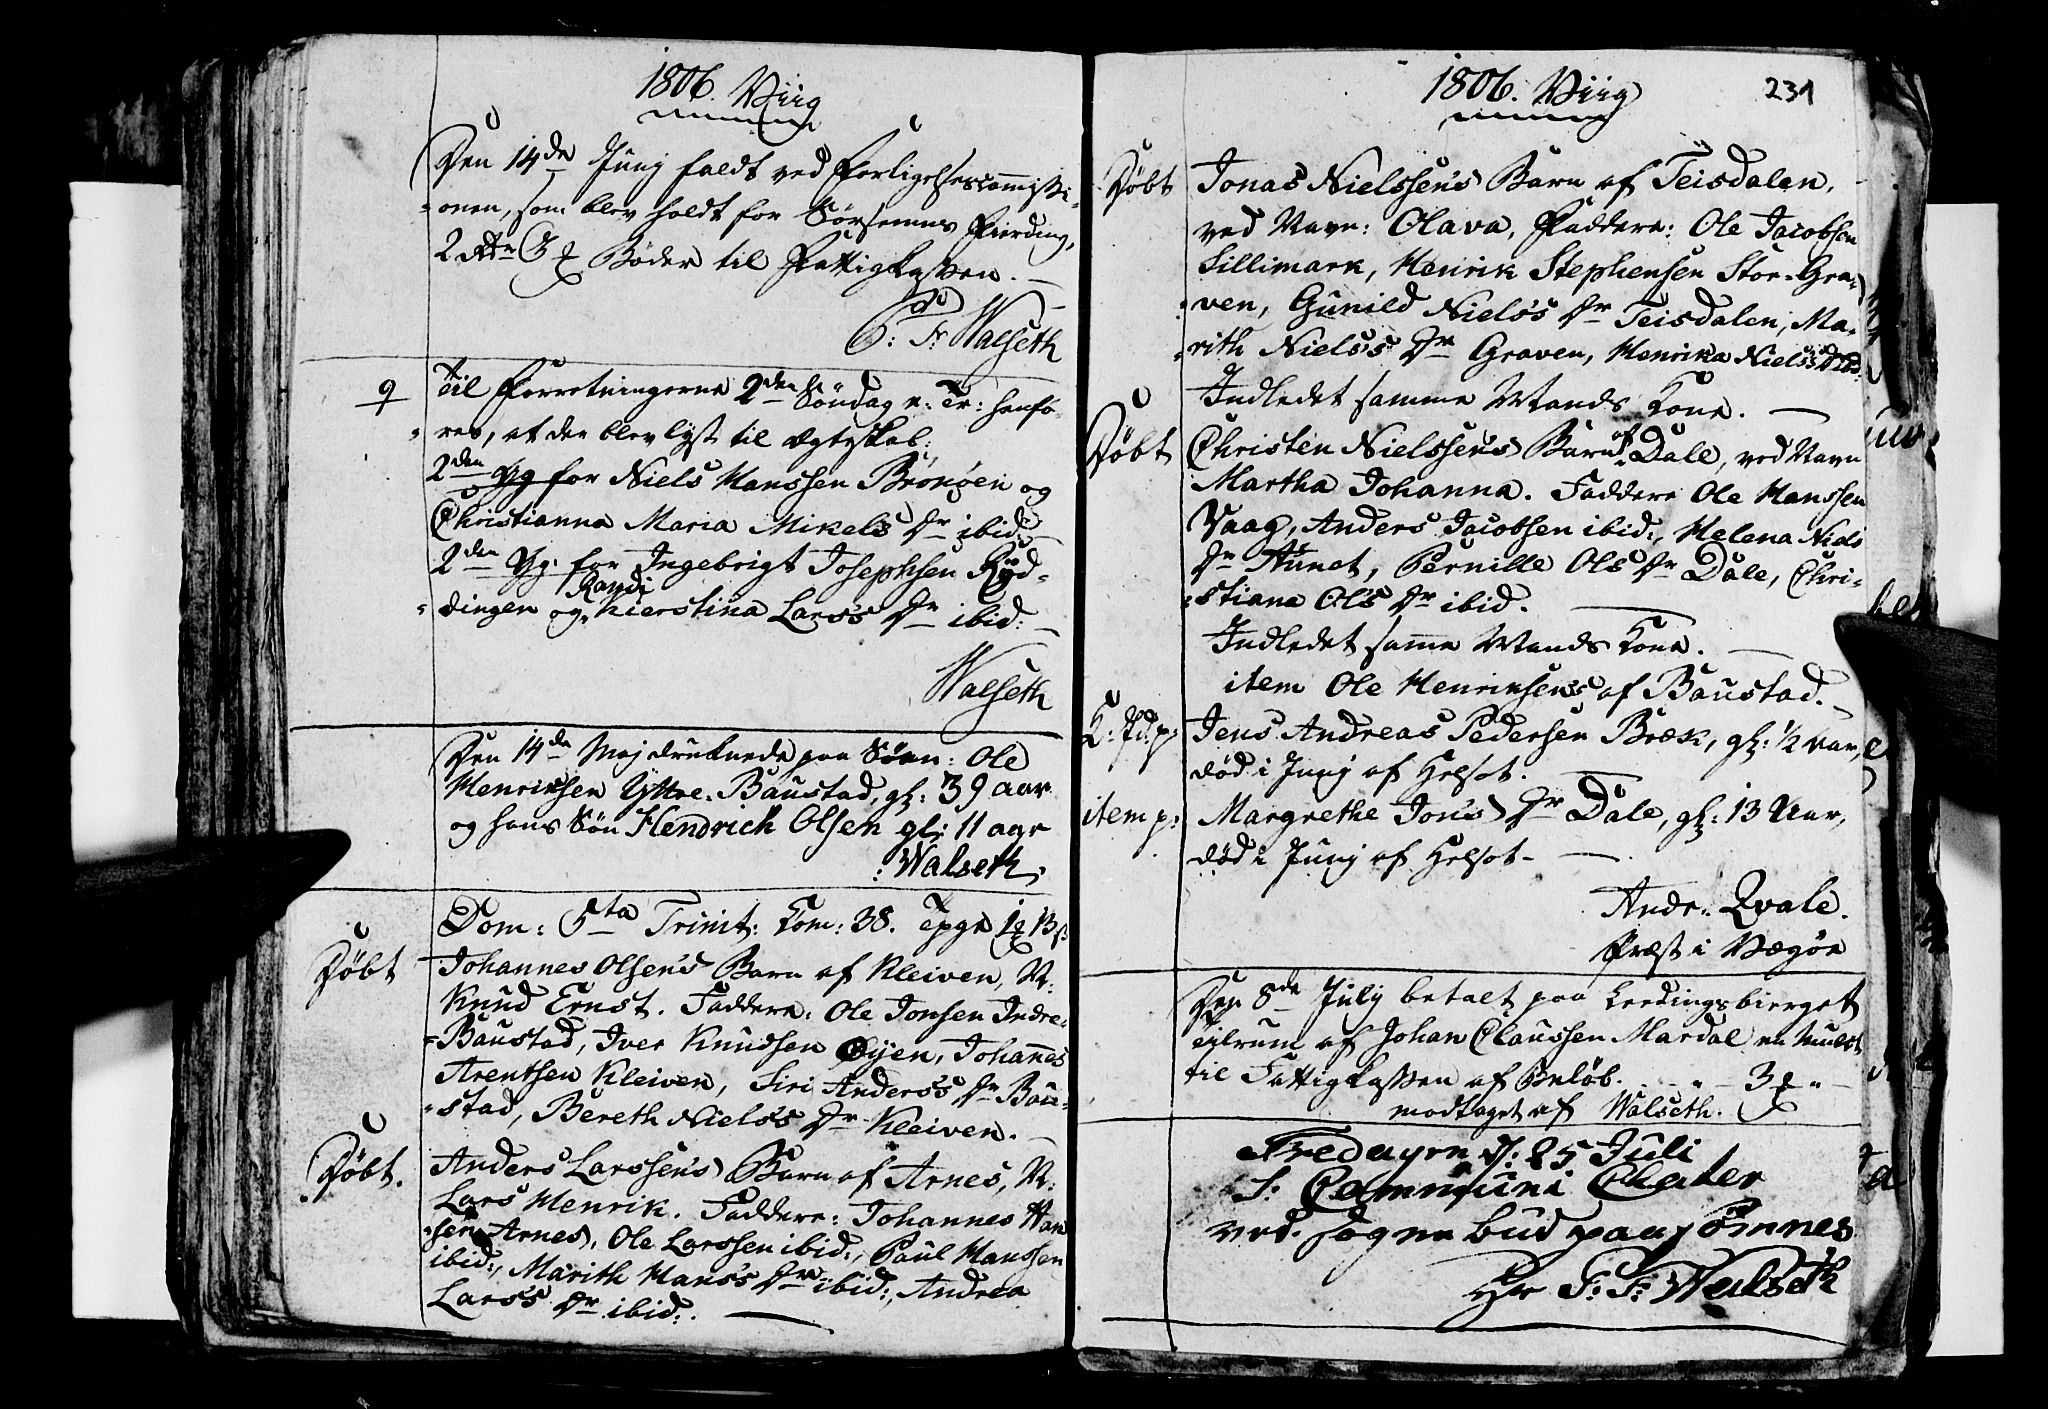 1806. Viig
Den 14de Junj faldt ved Forligelsescommissi-
onen, som blev holdt for Sørsemnes Fierding,
2 Bøder til Fattigkassen.
C: F: Walseth
9
Til Forretningerne 2den Søndag e: Tr: henfø
res, at der blev lyst til Ægteskab:
2den Gg for Niels Hanssen Brønøen og
Christianna Maria Mikels Dr ibid:
2den Gg. for Ingebrigt Josephsen Ryd-
Randi
dingen og Kierstina Lars's Dr ibid:
Walseth
Den 14de Maj druknede paa Søen: Ole
Henriksen Yttre-Baustad, gl: 39 aar
og hans Søn Hendrich Olsen gl: 11 aar
Walseth
Dom: 5ta Trinit: Kom: 38.
Døbt
Johannes Olsen's Barn af Kleiven, N:
Knud Ernst. Faddere: Ole Jonsen Indre-
Baustad, Iver Knudsen Øyen, Johannes
Arentsen Kleiven, Siri Anders's Dr Bau-
stad, Bereth Niels's Dr Kleiven.
Døbt.
Anders Larssen's Barn af Arnes, N:
Lars Henrik. Faddere: Johannes Han
sen Arnes, Ole Larssen ibid:, Paul Hanssen
ibid:, Marith Hans's Dr ibid:, Andrea
Lars's Dr ibid:.
1806. Viig
231
Døbt
Jonas Nielssen's Barn af Teisdalen,
ved Navn: Olava, Faddere: Ole Jacobsen
Lillimark, Henrik Stephensen Stor-Gra-
ven, Gunild Niels's Dr Teisdalen, Ma-
rith Niels's Dr Graven, Henrika Niels's
Indledet samme Mands Kone.
Døbt
Christen Nielssen's Barn af Dale, ved Navn
Martha Johanna. Faddere Ole Hanssen
Vaag, Anders Jacobsen ibid:, Helena Niels
Dr Aunet, Pernille Ols Dr Dale, Chri-
stiana Ol's Dr ibid.
Indledet samme Mands Kone.
item Ole Henriksen's af Baustad.
K: Jd: p:
Jens Andreas Pedersen Bræk, gl: 1/2 Aar,
død i Junj af Helsot.
item p:
Margrethe Jon's Dr Dale, gl: 13 Aar,
død i Junj af Helsot.
Andr. Qvale.
Præst i Vegøe
Den 8de July betalt paa Leedings bierget
af Johan Claussen Mardal en Mulct
til Fattigkassen af Beløb. 3
modtaget af Walseth.
Fredagen d: 25 Juli
ved Sogne bud paa Sømnes
Hr F: F: Walseth